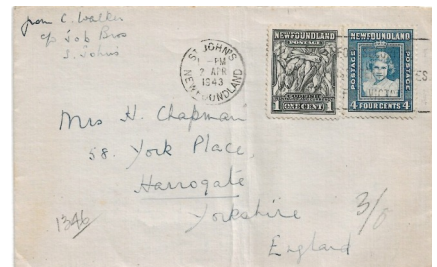 from C. Walker
c/o Job Bros
S. Johns
ST. JOHN'S
1 - PM
2 APR
1943
NEWFOUNDLAND
NEWFOUNDLAND
POSTAGE
1 ONE CENT 1
NEWFOUNDLAND
POSTAGE
POSTAGE
4 FOUR CENTS 4
Mrs H. Chapman
58. York Place,
Harrogate
Yorkshire
England
1346
3/8